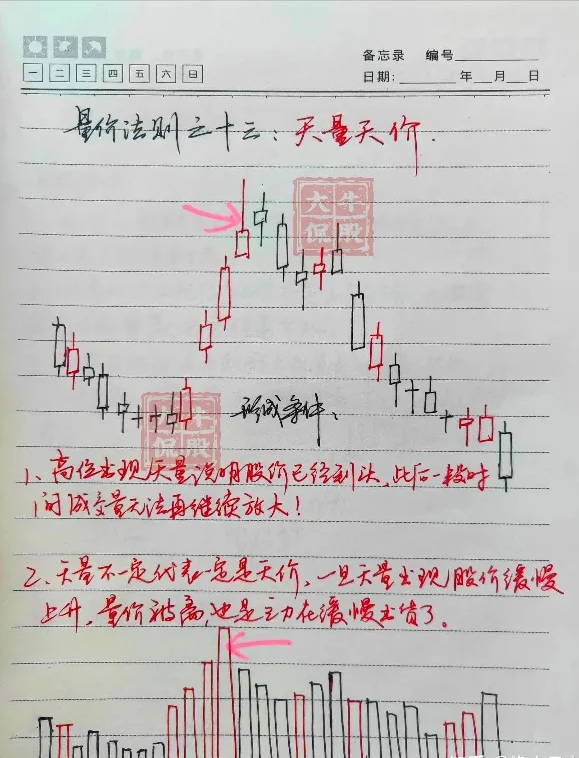 备忘录 编号
一 二 三 四 五 六 日
日期: 年 月 日
量价法则之十三: 天量天价.
大牛
侃股
大牛
侃股
形成条件:
1、高位出现天量说明股价已经到头,此后一段时
间成交量无法再继续放大!
2、天量不一定代表一定是天价,一旦天量出现股价缓慢
上升,量价被离,也是主力在缓慢出货了。